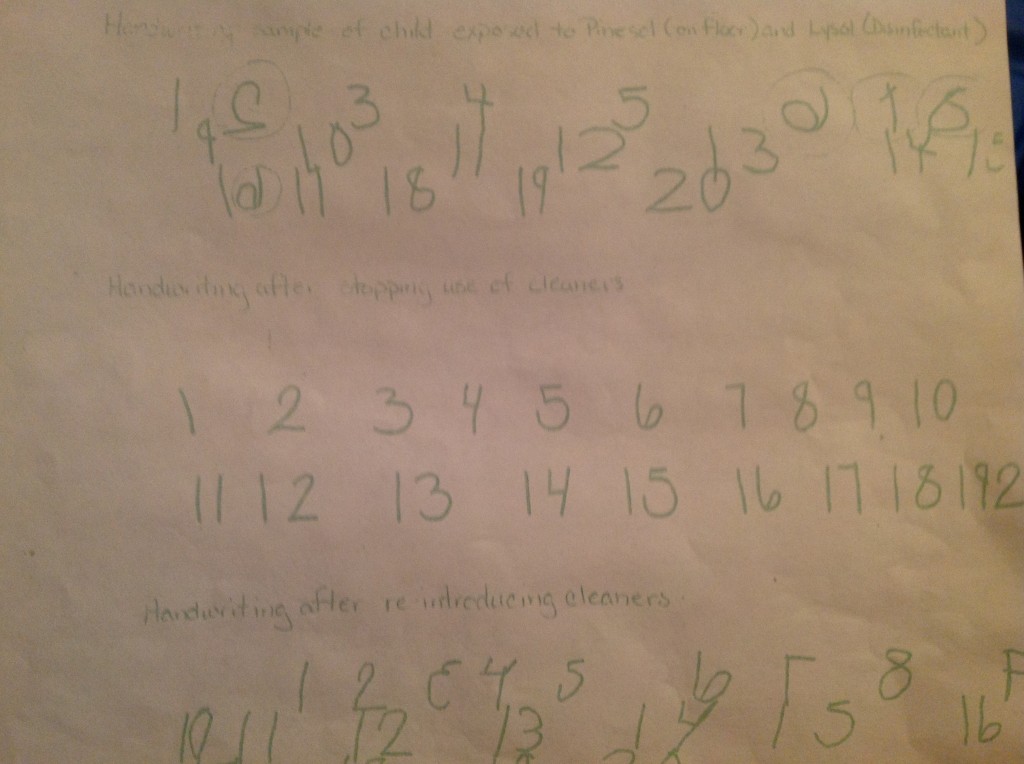 Handwriting sample of child exposed to Pinesol (on floor) and Lysol (Disinfectant)
1 2 3 4 5 6 7 8
9 10 11 12 13 14 15
16 17 18 19 20
Handwriting after stopping use of cleaners
1 2 3 4 5 6 7 8 9 10
11 12 13 14 15 16 17 18 19 2
Handwriting after re introducing cleaners.
1 2 3 4 5 6 7 8
10 11 12 13 14 15 16